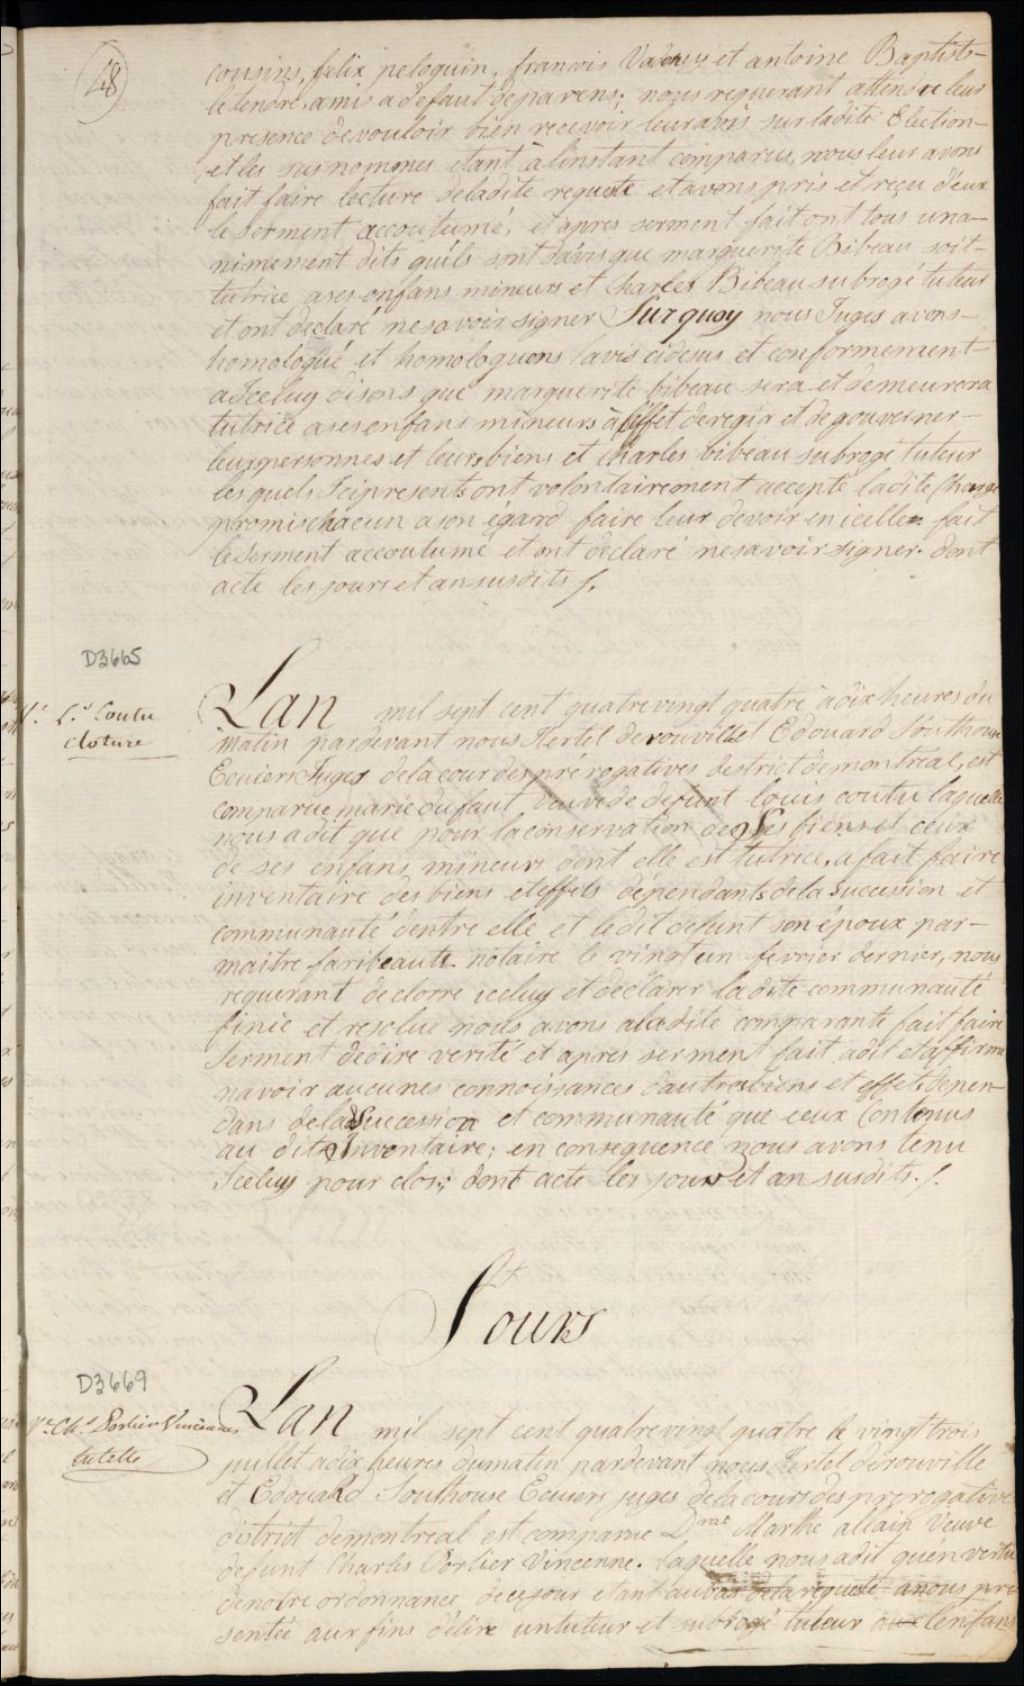 48
cousins, felix peloquin, francois Vadeny et antoine Baptiste
letendre, amis a defaut de parens; nous requerant attendu leur
presence de vouloir bien recevoir leur avis sur ladite Election
et les sus nommes etant à linstant comparus, nous leur avons
fait faire lecture deladite requete et avons pris et reçu d'eux
le serment accoutumé, et apres serment fait ont tous una-
nimement dits qu'ils sont d'avis que marguerite Bibeau soit
tutrice a ses enfans mineurs et Charles Bibeau subrogé tuteur
et ont declaré ne savoir signer Surquoy nous Juges avons
homologué et homologuons lavis cidesus et conformement
a Iceluy disons que marguerite bibeau sera et demeurera
tutrice a ses enfans mineurs à leffet de regir et de gouverner
leurs personnes et leurs biens et Charles bibeau subrogé tuteur
les quels Icipresents ont volontairement accepté ladite Charge
promis chacun a son égard faire leur devoir en icelle fait
le serment accoutumé et ont declaré ne savoir signer. dont
acte les jours et an susdits /.
D3665
Ve. Ls. Coutu
cloture
Lan mil sept cent quatre vingt quatre à dix heures du
matin pardevant nous Hertel de rouville et Edouard Southouse
Ecuiers Juges delacour des prérogatives destrict de montreal, est
comparue marie dufaut, Veuve de defunt louis coutu laquelle
nous a dit que pour la conservation de Ses biens et ceux
de ses enfans mineurs dont elle est tutrice, a fait faire
inventaire des biens et effets dépendants dela succession et
communauté d'entre elle et le dit defunt son époux par
maitre faribeault notaire le vingt un fevrier dernier, nous
requerant de clorre iceluy et déclarer la dite communauté
finie et resolue nous avons aladite comparante fait faire
Serment dedire verité et apres serment fait, adit et affirmé
navoir aucunes connoissances dautres biens et effets depen-
dans de la Succession et communauté que ceux Contenus
au dit Inventaire; en consequence nous avons tenu
Iceluy pour clos; dont acte les jours et an susdits. /.
Jours
D3669
Ve. Chs. Porlier Vincennes
tutelle
Lan mil sept cent quatre vingt quatre le vingt trois
juillet a dix heures dumatin pardevant nous Hertel de rouville
et Edouard Southouse Ecuiers juges dela cour des prerogatives
district de montreal est comparue Dme Marthe allain Veuve
defunt Charles Porlier Vincenne. laquelle nous adit qu'en vertu
denotre ordonnance de ce jour etant au bas dela requete anous pré
sentée aux fins d'élire un tuteur et subrogé tuteur aux enfans